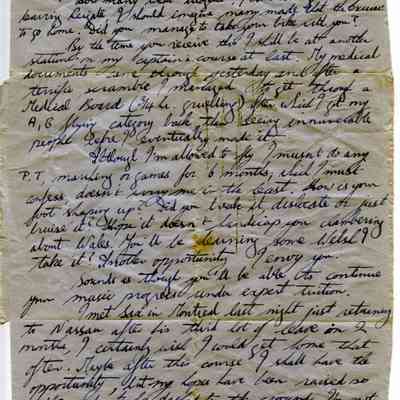 leaving Reigate I should imagine many made that the excuse
to go home. Did you manage to take your bike with you?
By the time you receive this I shall be at another
station on my captain's course at last. My medical
documents came through yesterday and after a
terrific scramble I managed to get through a
Medical Board after which I got my
A, B flying category back then seeing innumerable
people before I eventually made it.
Although I'm allowed to fly I musn't do any
P.T. marching or games for 6 months, which I must
confess doesn't worry me in the least. How is your
foot shaping up? Did you break it dislocate or just
bruise it? Hope it doesn't handicap you clambering
about Wales. You'll be learning some Welsh I
take it? Another opportunity I envy you.
Sounds as though you'll be able to continue
your music progress under expert tuition.
I met in Montreal last night just returning
to Nassau after his third lot of leave in 2
months. I certainly wish I could get some that
often. Maybe after this course I shall have the
opportunity but my hopes have been raised so
to the ground